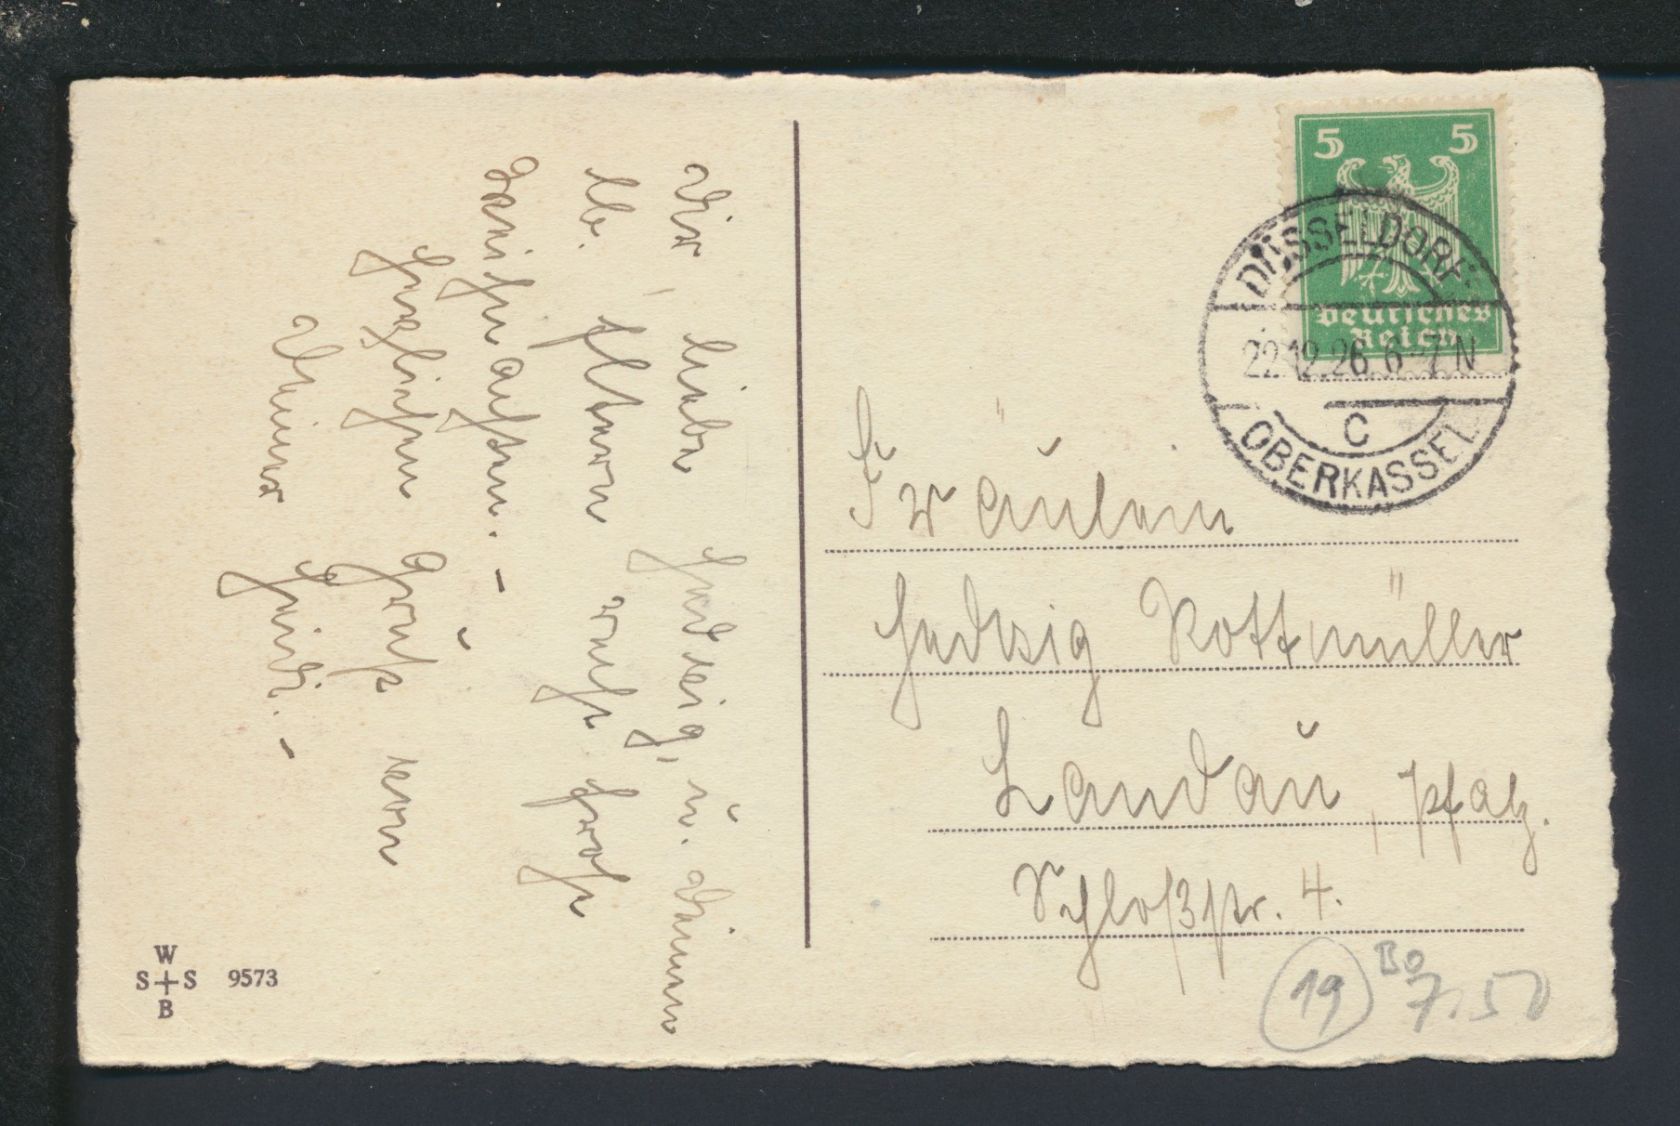 Dir liebe Hedwig, u. Deinen
lb. Eltern recht frohe
Weihnachten. –
Herzlichen Gruß von
Deiner Heidi. –
W
S+S 9573
B
5 5
Deutsches
Reich
DÜSSELDORF-
22.12.26.6-7 N
C
OBERKASSEL
Fräulein
Hedwig Rottmüller
Landau, Pfalz.
Schloßstr. 4.
19 BO
7.50